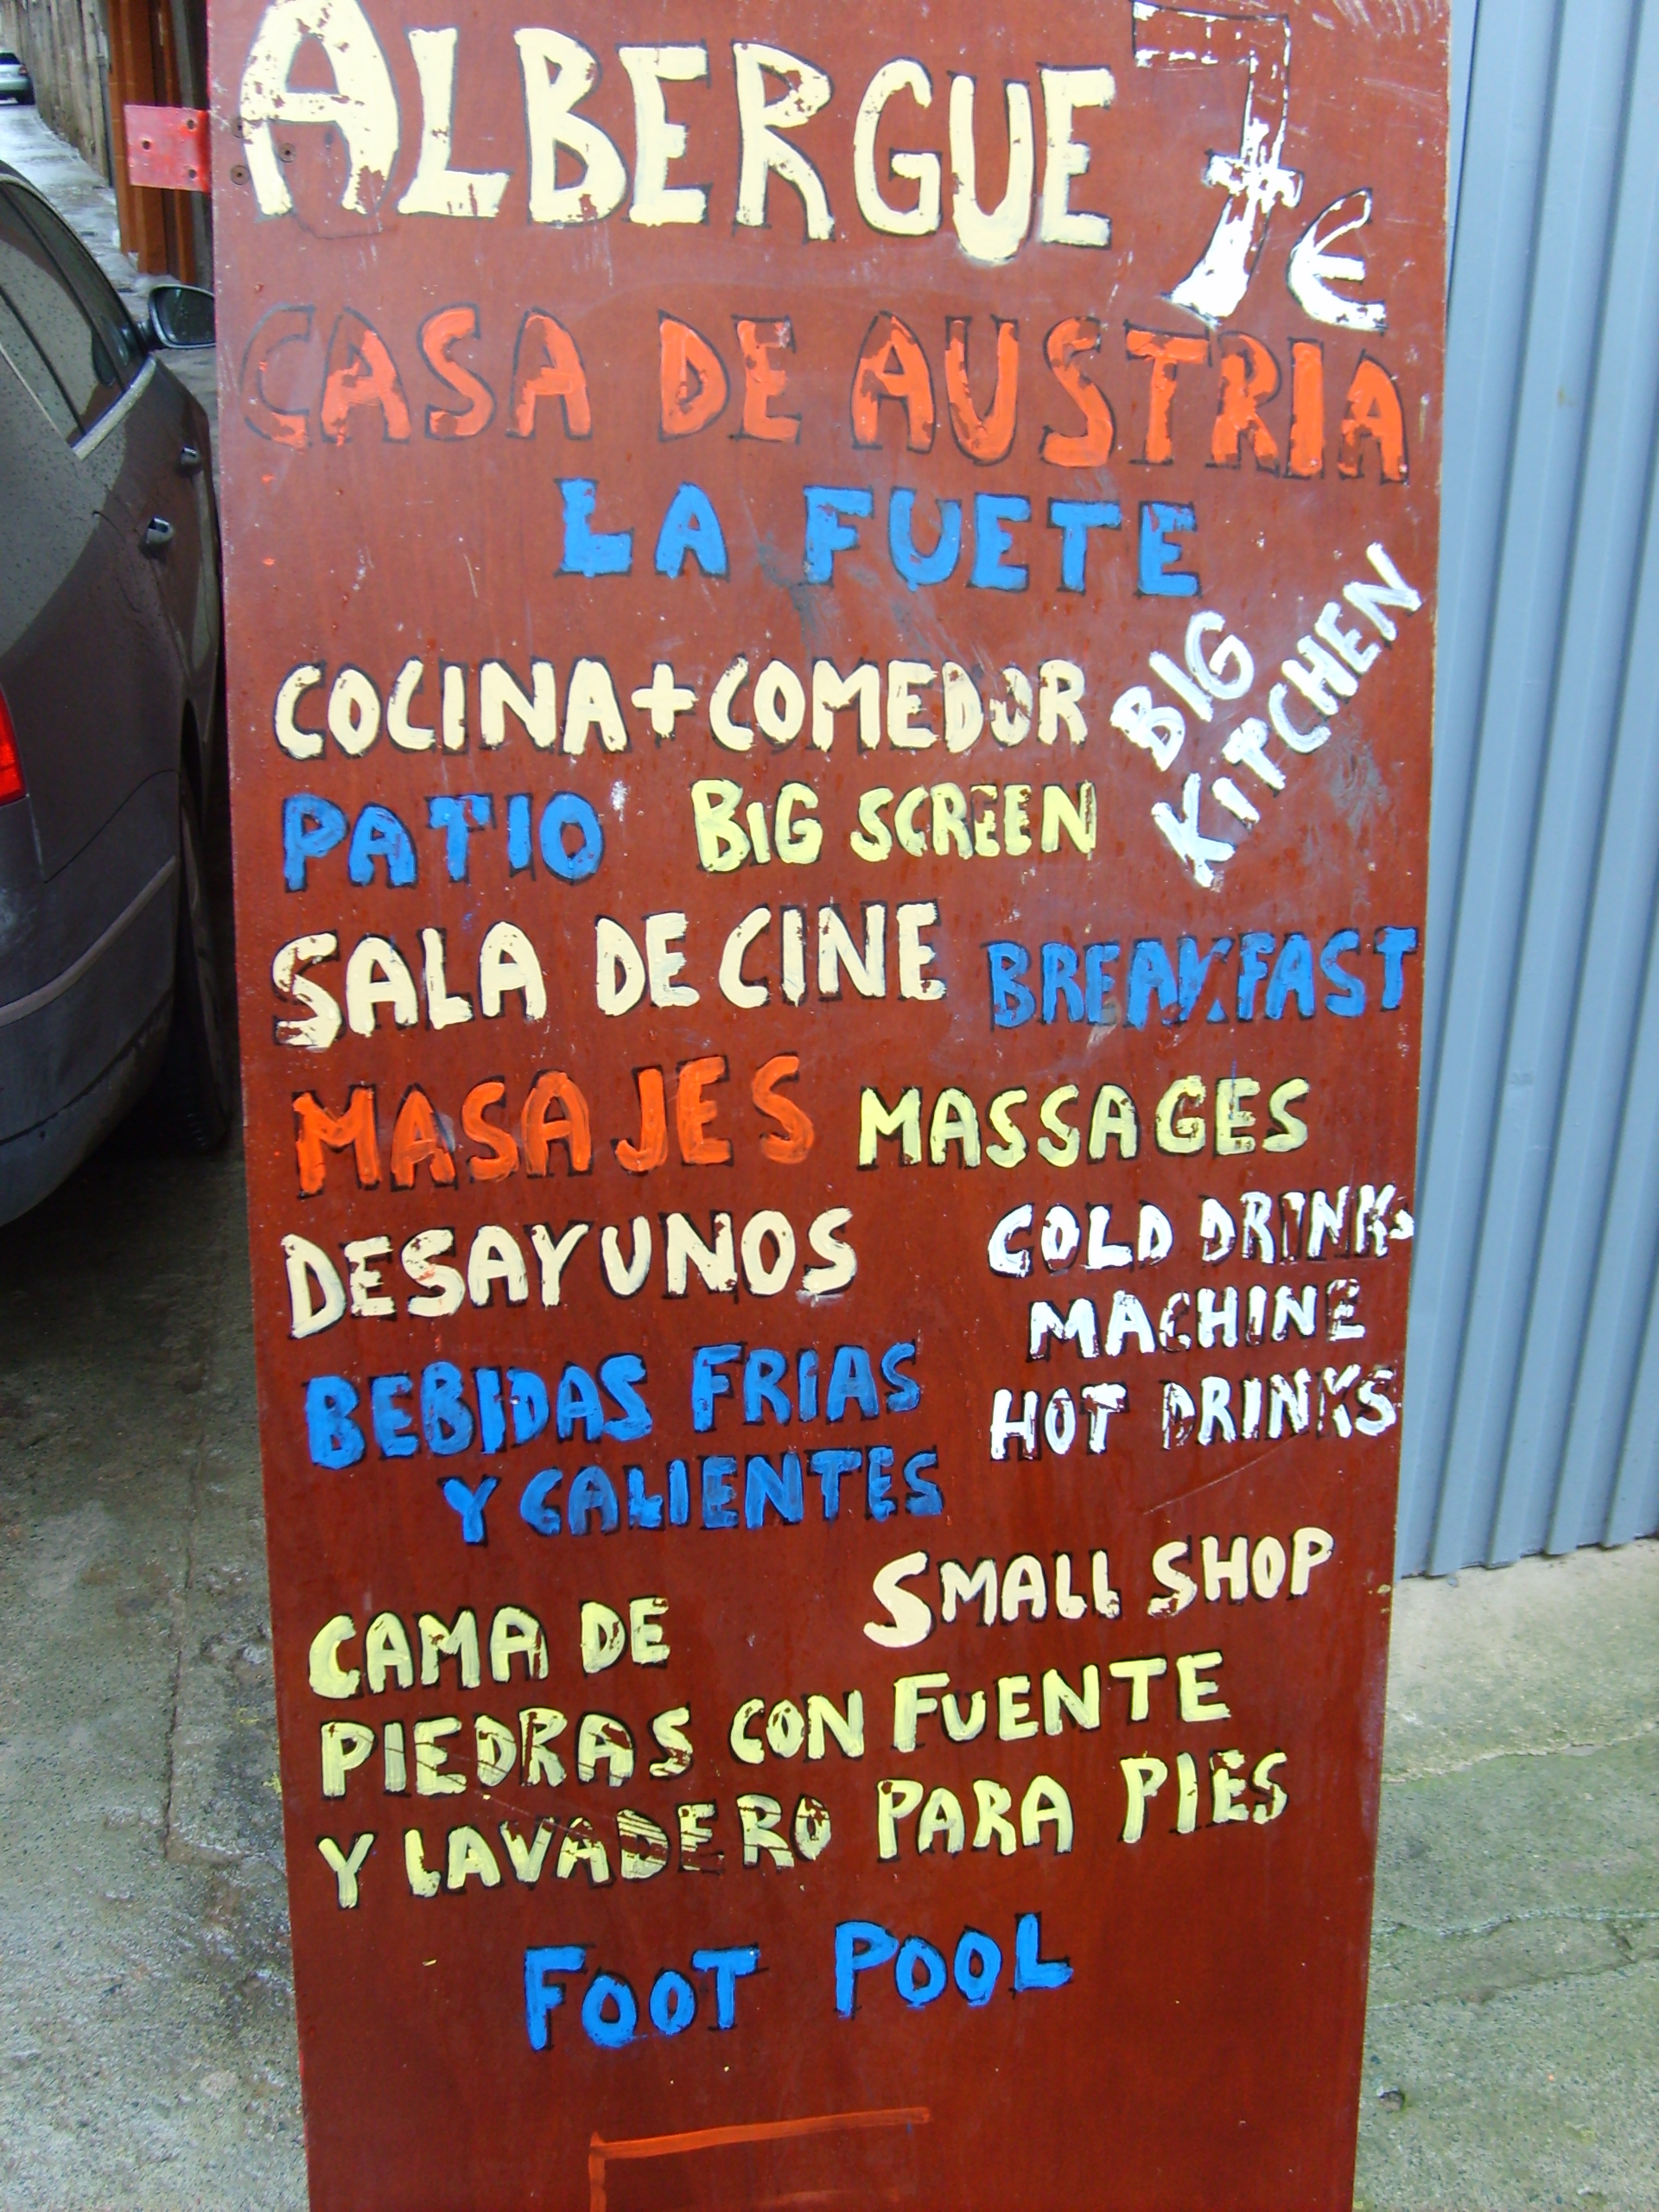 ALBERGUE 7€
CASA DE AUSTRIA
LA FUETE
COCINA+COMEDOR
BIG
KITCHEN
PATIO BIG SCREEN
SALA DE CINE BREAKFAST
MASAJES MASSAGES
DESAYUNOS
COLD DRINKS
MACHINE
HOT DRINKS
BEBIDAS FRIAS
Y CALIENTES
SMALL SHOP
CAMA DE
PIEDRAS CON FUENTE
Y LAVADERO PARA PIES
FOOT POOL